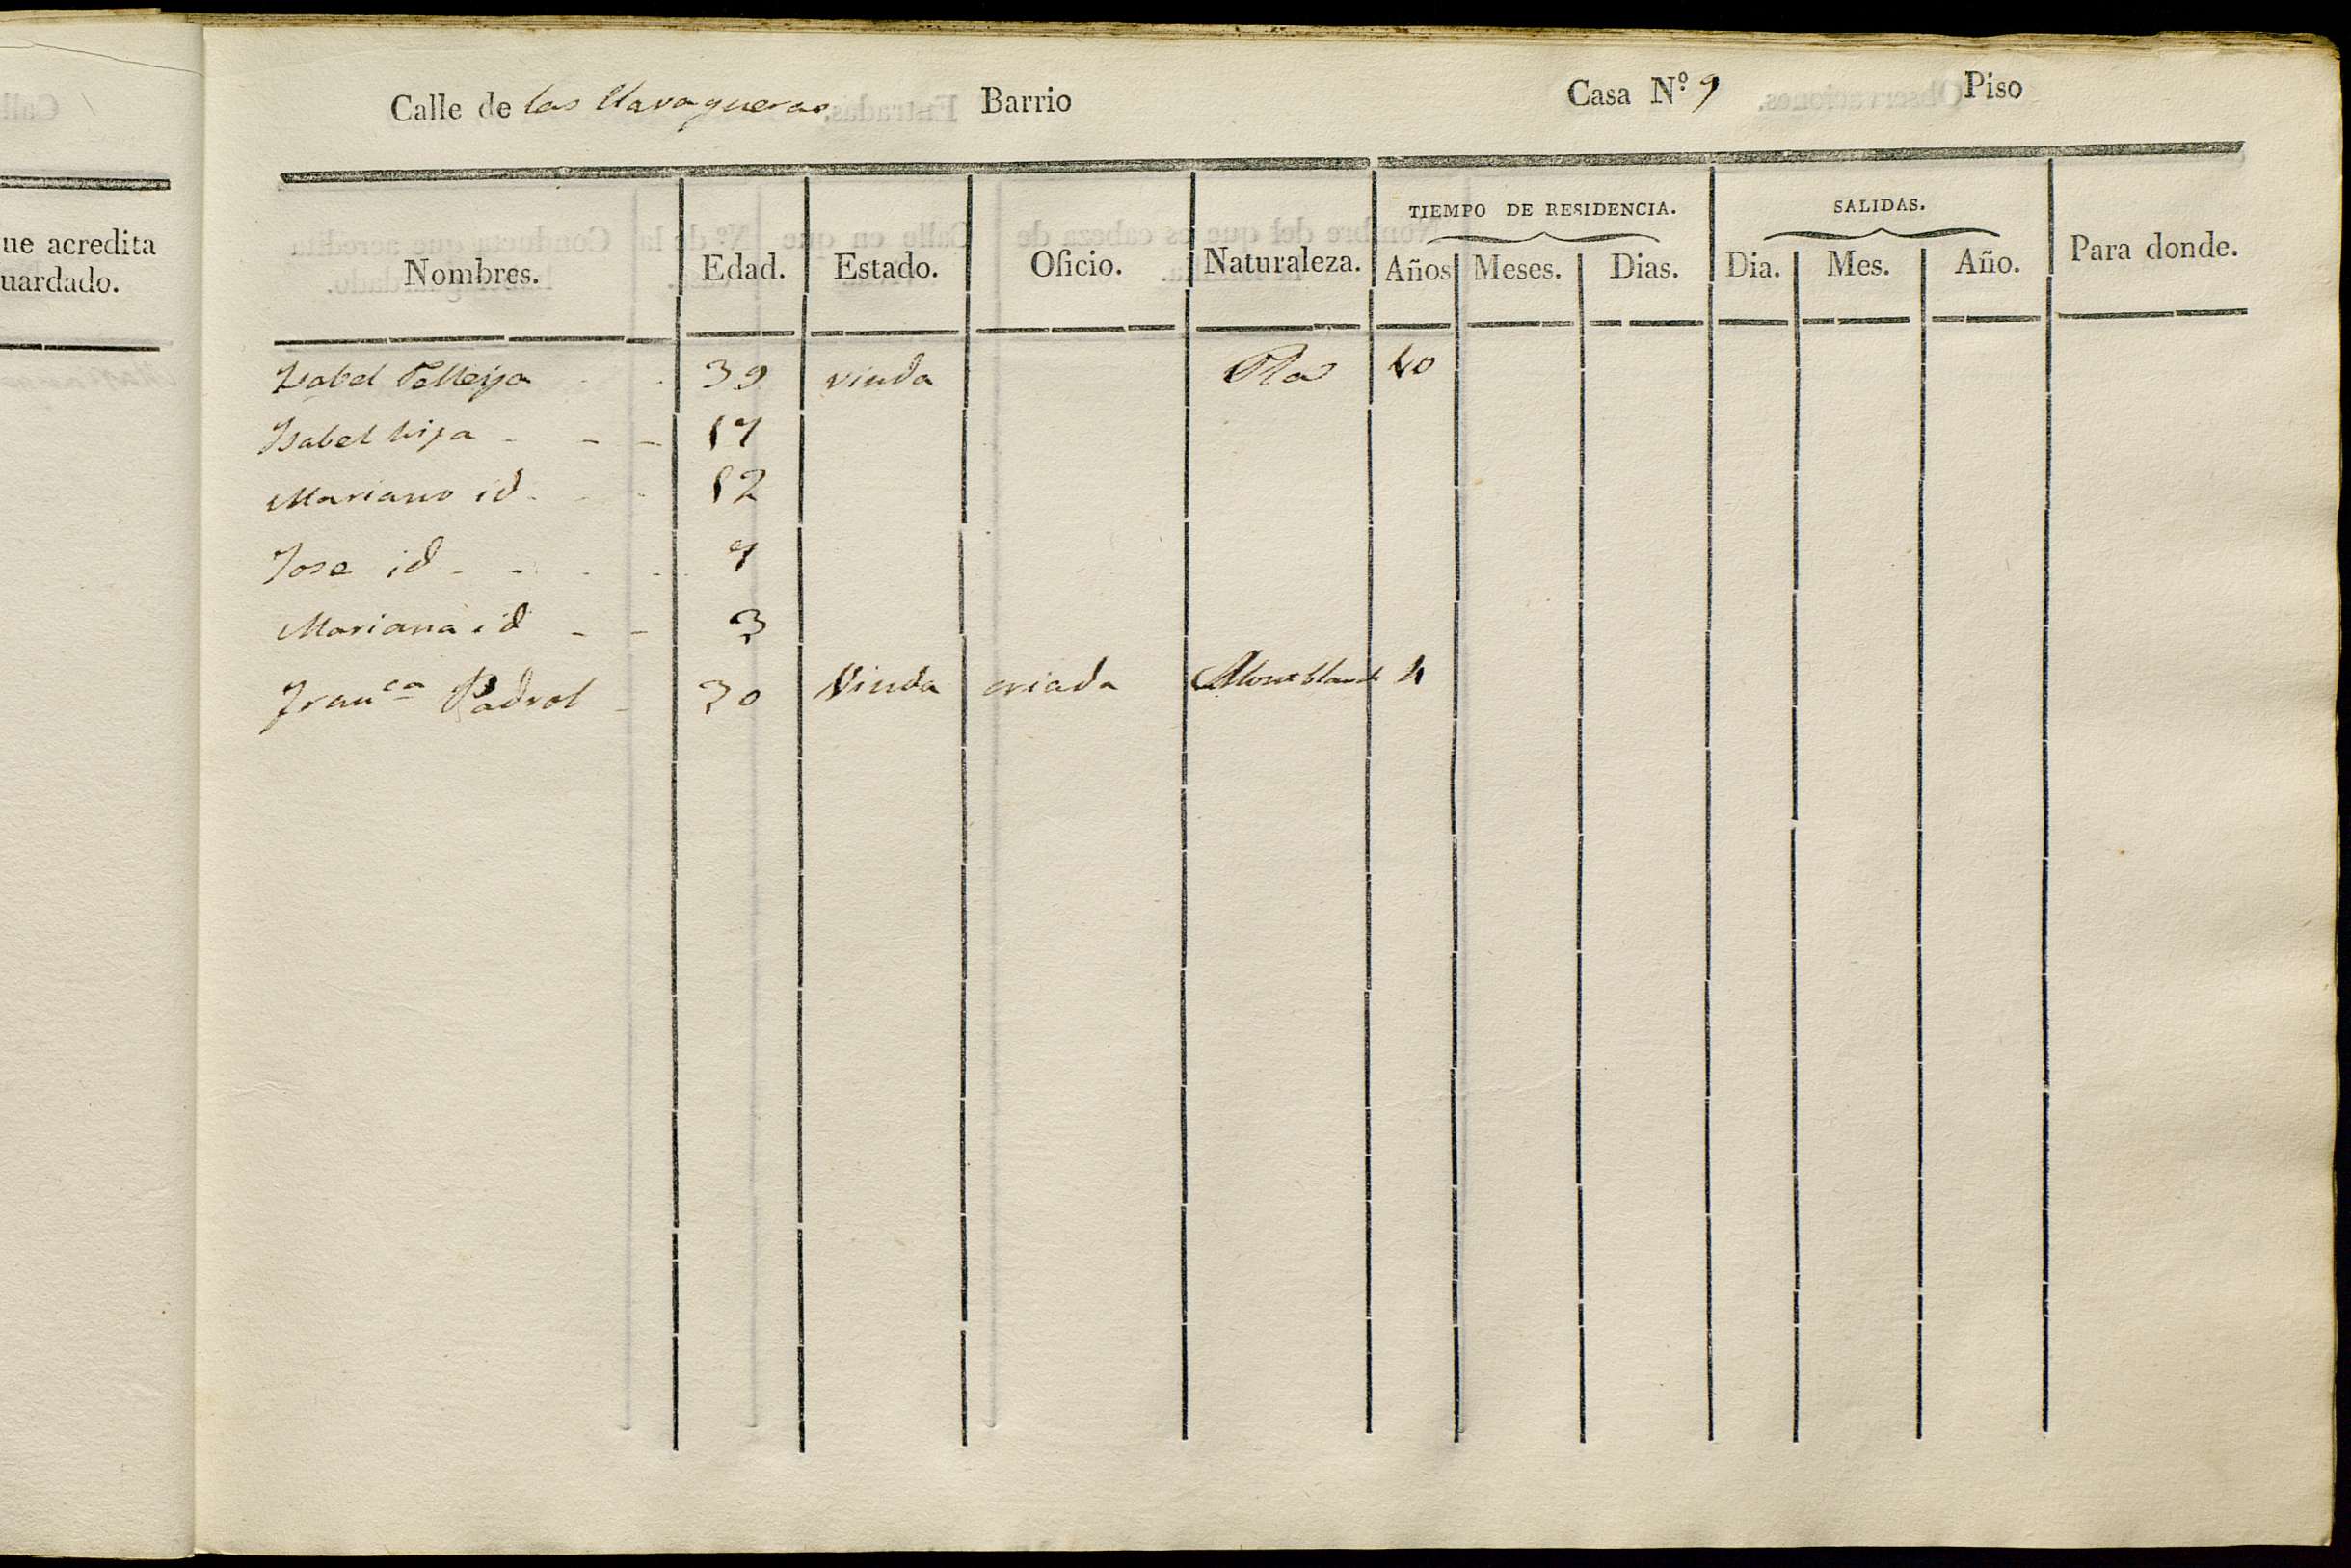 ue acredita
uardado.
Calle de las Navagueras Barrio Casa N.º 9 Piso
TIEMPO DE RESIDENCIA. SALIDAS.
Nombres. Edad. Estado. Oficio. Naturaleza. Años Meses. Dias. Dia. Mes. Año. Para donde.
Isabel Pelleija 39 viuda Pla 40
Isabel hija - - - 17
Mariano id - - - 12
Jose id - - - - 7
Mariana id - - 3
Fran.ca Padrol - 30 Viuda criada Montblanch 4